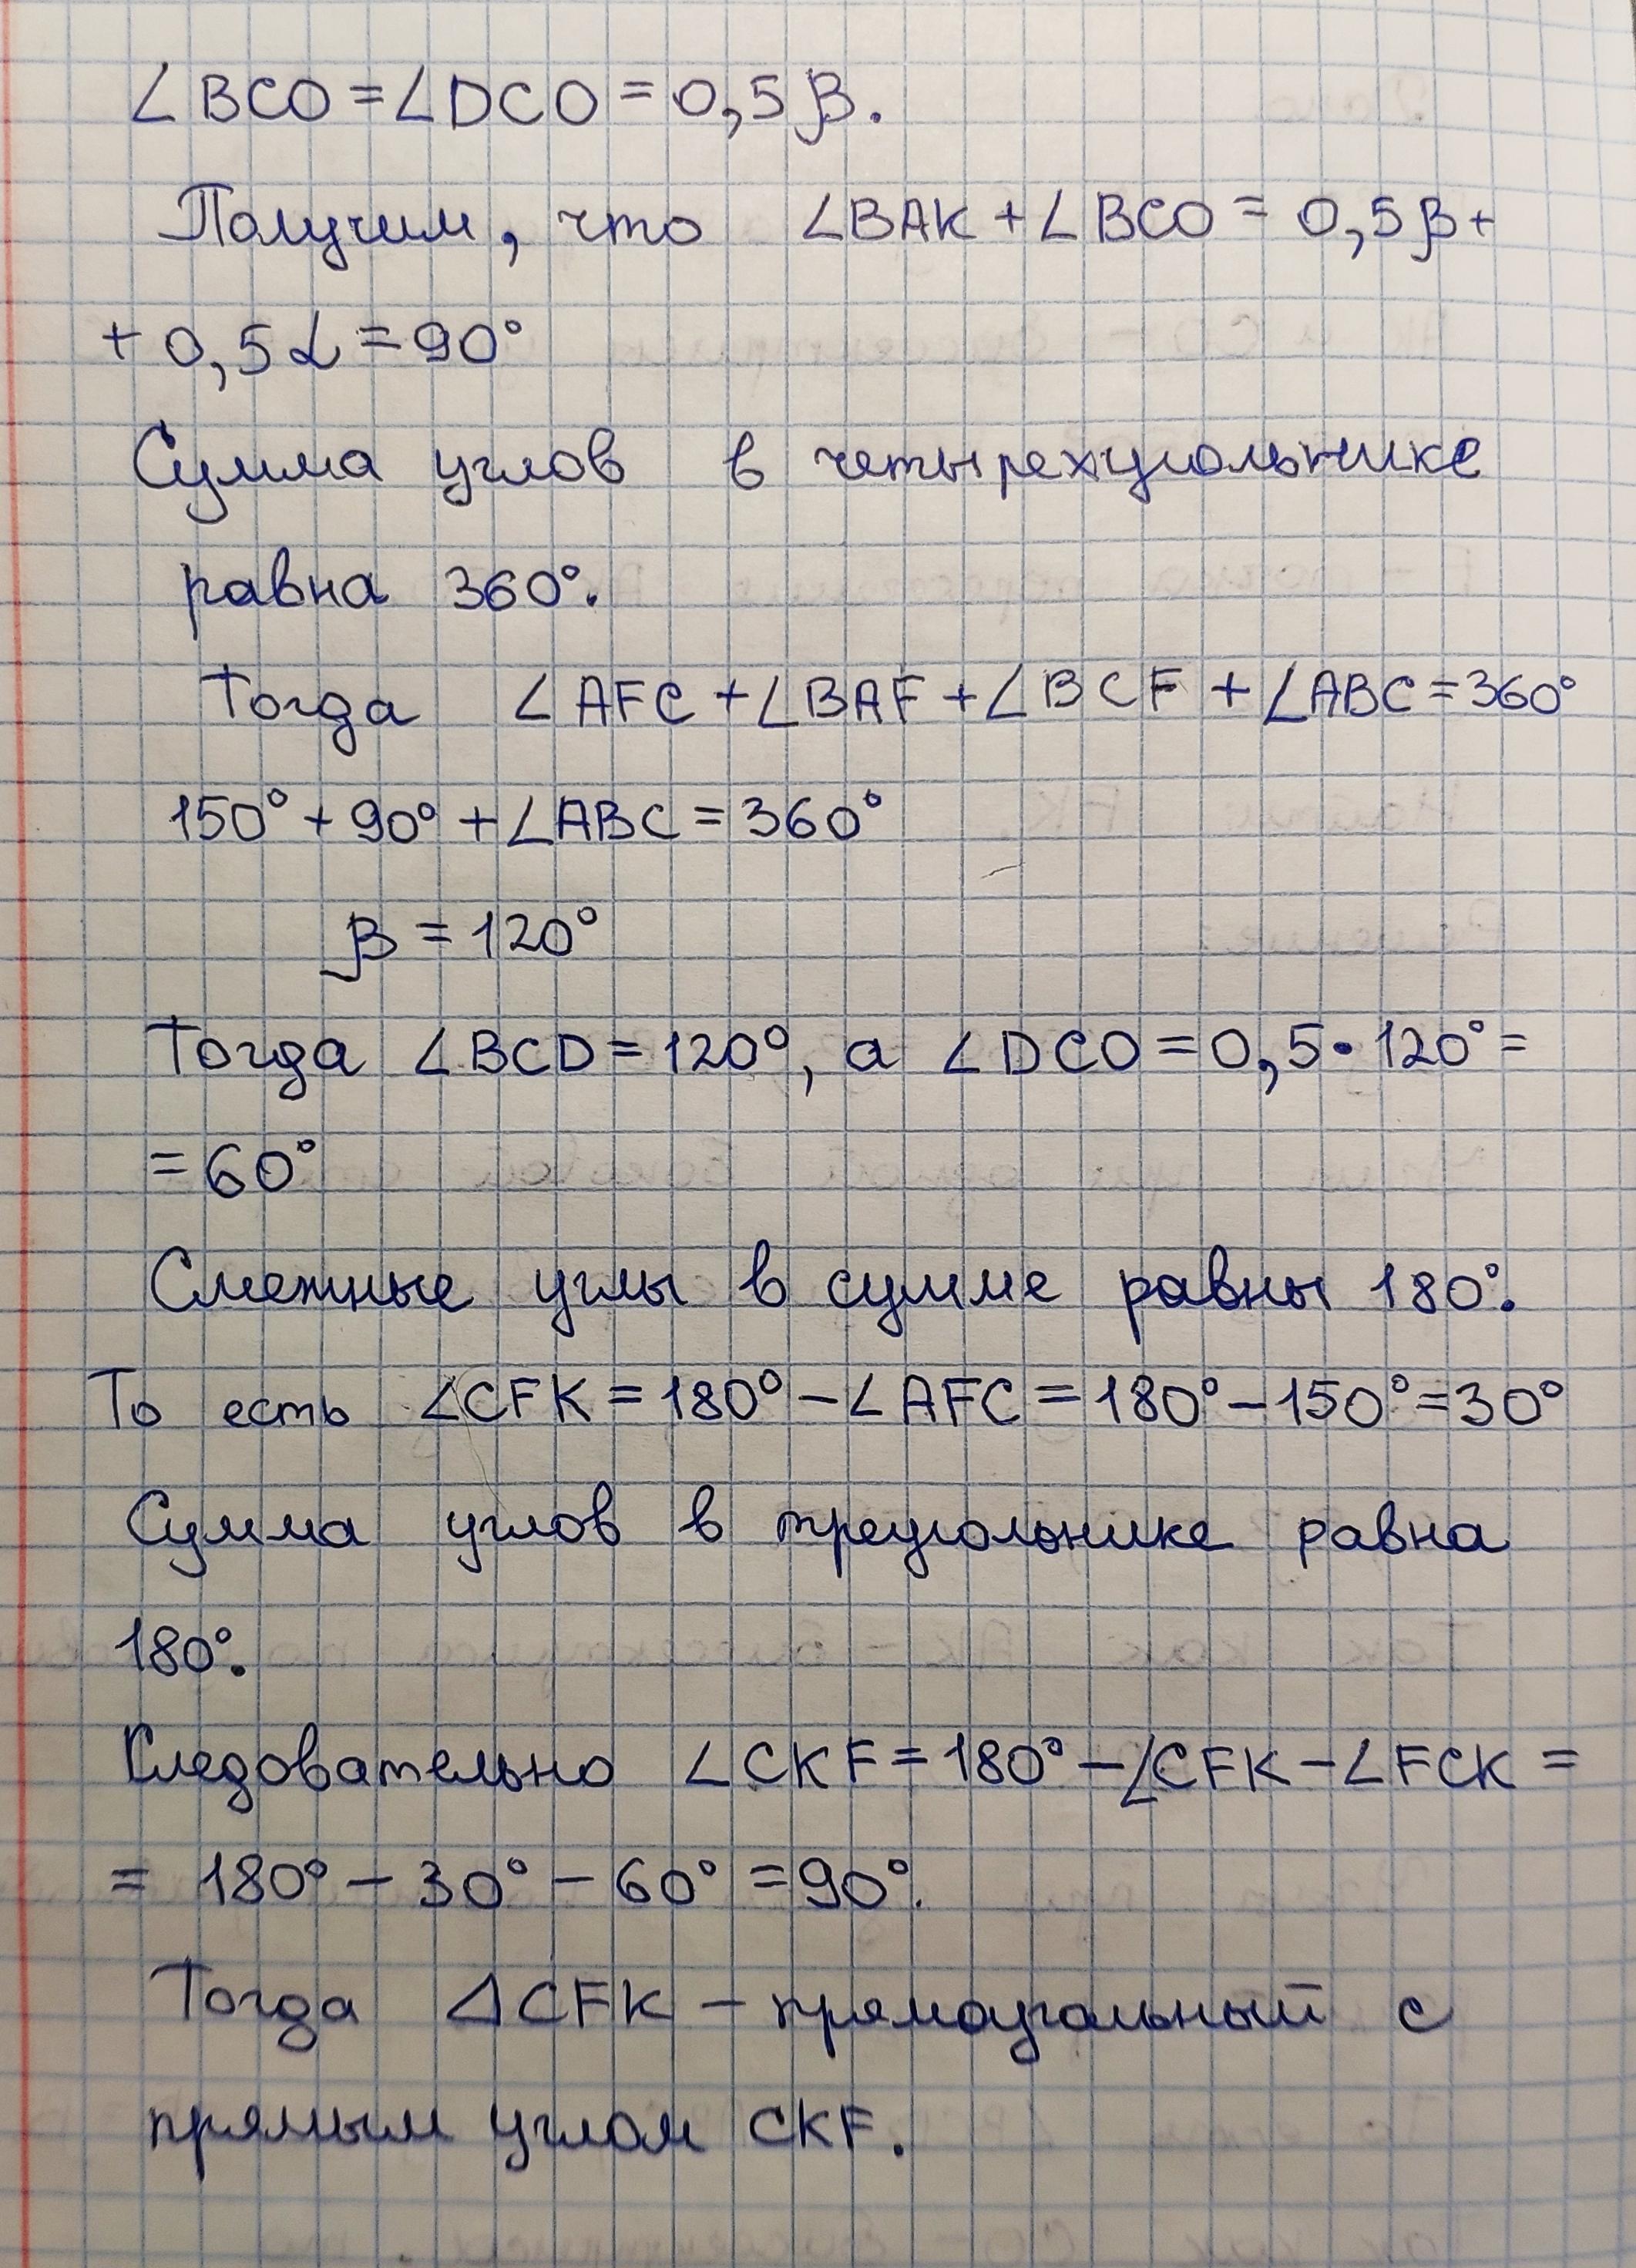 ∠BCO = ∠DCO = 0,5β.
Получим, что ∠BAK + ∠BCO = 0,5β +
+ 0,5α = 90°
Сумма углов в четырехугольнике
равна 360°.
Тогда ∠AFC + ∠BAF + ∠BCF + ∠ABC = 360°
150° + 90° + ∠ABC = 360°
β = 120°
Тогда ∠BCD = 120°, а ∠DCO = 0,5 • 120° =
= 60°
Смежные углы в сумме равны 180°.
То есть ∠CFK = 180° – ∠AFC = 180° – 150° = 30°
Сумма углов в треугольнике равна
180°.
Следовательно ∠CKF = 180° – ∠CFK – ∠FCK =
= 180° – 30° – 60° = 90°.
Тогда △CFK – прямоугольный с
прямым углом CKF.